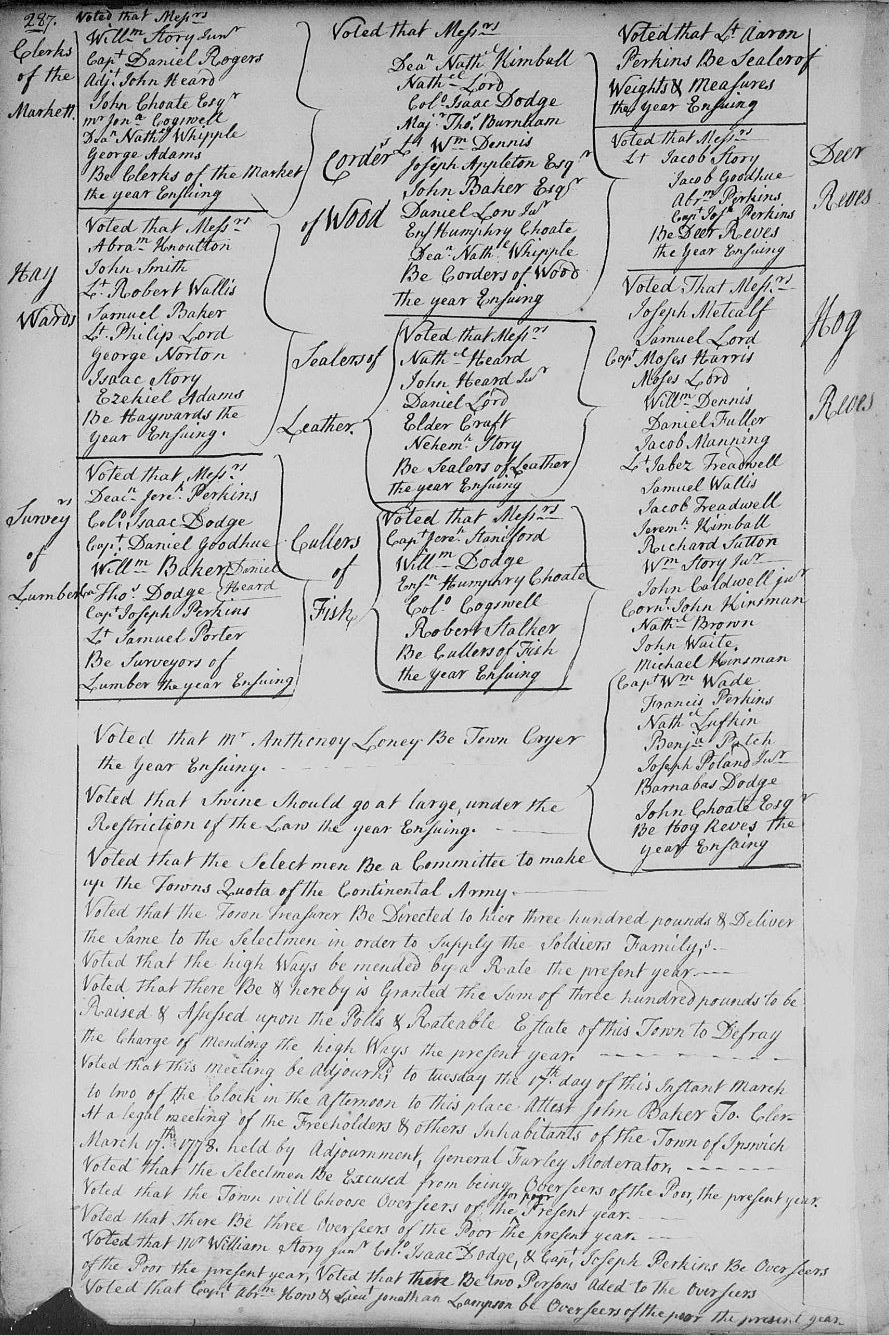 287.
Clerks
of the
Markett.
Voted that Messrs
Willm Story Junr
Capt Daniel Rogers
Adjt John Heard
John Choate Esqr
mr Jona Cogswell
Dean Nathel Whipple
George Adams
Be Clerks of the Market
the year Ensuing
Hay
Wards
Voted that Messrs
Abram Knoulton
John Smith
Lt Robert Wallis
Samuel Baker
Lt Philip Lord
George Norton
Isaac Story
Ezekiel Adams
Be Haywards the
year Ensuing.
Surveyrs
of
Lumber
Voted that Messrs
Deacn Jereh Perkins
Colo Isaac Dodge
Capt Daniel Goodhue
Willm Baker Daniel
Thos Dodge Heard
Capt Joseph Perkins
Lt Samuel Porter
Be Surveyors of
Lumber the year Ensuing
Corders
of Wood
Voted that Messrs
Dean Nathel Kimball
Nathel Lord
Colo Isaac Dodge
Majr Thos Burnham
Lt Wm Dennis
Joseph Appleton Esqr
John Baker Esqr
Daniel Low Junr
Ens Humphry Choate
Dean Nathel Whipple
Be Corders of Wood
the year Ensuing
Sealers of
Leather.
Voted that Messrs
Nathel Heard
John Heard Junr
Daniel Lord
Elder Craft
Nehemh Story
Be Sealers of Leather
the year Ensuing
Cullers
of
Fish
Voted that Messrs
Capt Jereh Staniford
Willm Dodge
Ensn Humphry Choate
Colo Cogswell
Robert Stalker
Be Cullers of Fish
the year Ensuing
Voted that Lt Aaron
Perkins Be Sealer of
Weights & Measures
the year Ensuing
Deer
Reves
Voted that Messrs
Lt Jacob Story
Jacob Goodhue
Abrm Perkins
Capt Josh Perkins
Be Deer Reves
the year Ensuing
Hog
Reves
Voted That Messrs
Joseph Metcalf
Samuel Lord
Capt Moses Harris
Moses Lord
Willm Dennis
Daniel Fuller
Jacob Manning
Lt Jabez Treadwell
Samuel Wallis
Jacob Treadwell
Jeremh Kimball
Richard Sutton
Wm Story Junr
John Caldwell junr
Corn. John Kinsman
Nathel Brown
John Waite.
Michael Kinsman
Capt Wm Wade
Francis Perkins
Nathel Lufkin
Benja Patch
Joseph Poland Junr
Barnabas Dodge
John Choate Esqr
Be Hog Reves the
year Ensuing
Voted that mr Anthoney Loney Be Town Cryer
the Year Ensuing.
Voted that Swine should go at large, under the
Restriction of the Law the year Ensuing.
Voted that the Select men Be a Committee to make
up the Towns Quota of the Continental Army.
Voted that the Town Treasurer Be Directed to hier three hundred pounds & Deliver
the Same to the Selectmen in order to Supply the Soldiers Family,s
Voted that the high Ways be mended by a Rate the present year.
Voted that there Be & hereby is Granted the Sum of three hundred pounds to be
Raised & Assessed upon the Polls & Rateable Estate of this Town to Defray
the Charge of mending the high Ways the present year.
Voted that this meeting be Adjournd to tuesday the 17th day of this Instant March
to two of the Clock in the afternoon to this place. Attest John Baker To. Cler
At a legal meeting of the Freeholders & others Inhabitants of the Town of Ipswich
March 17th 1778. held by Adjournment, General Farley Moderator,
Voted that the Selectmen Be Excused from being Overseers of the Poor, the present year.
Voted that the Town will Choose Overseers of the for poor Present year.
Voted that there Be three Overseers of the Poor the present year.
Voted that Mr William Story Junr Colo Isaac Dodge, & Capt Joseph Perkins Be Overseers
of the Poor the present year, Voted that there Be two Persons Aded to the Overseers
Voted that Capt Abrm How & Lieut Jonathan Lampson be Overseers of the poor the present year.